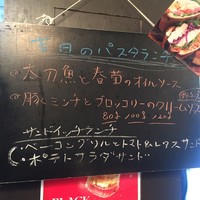 本日のパスタランチ
太刀魚と春菊のオイルソース
豚ミンチとブロッコリーのクリームソース
80g 100g 120g
サンドイッチランチ
ベーコングリルとトマト&レタスサンド
ポテトサラダサンド
BLACK